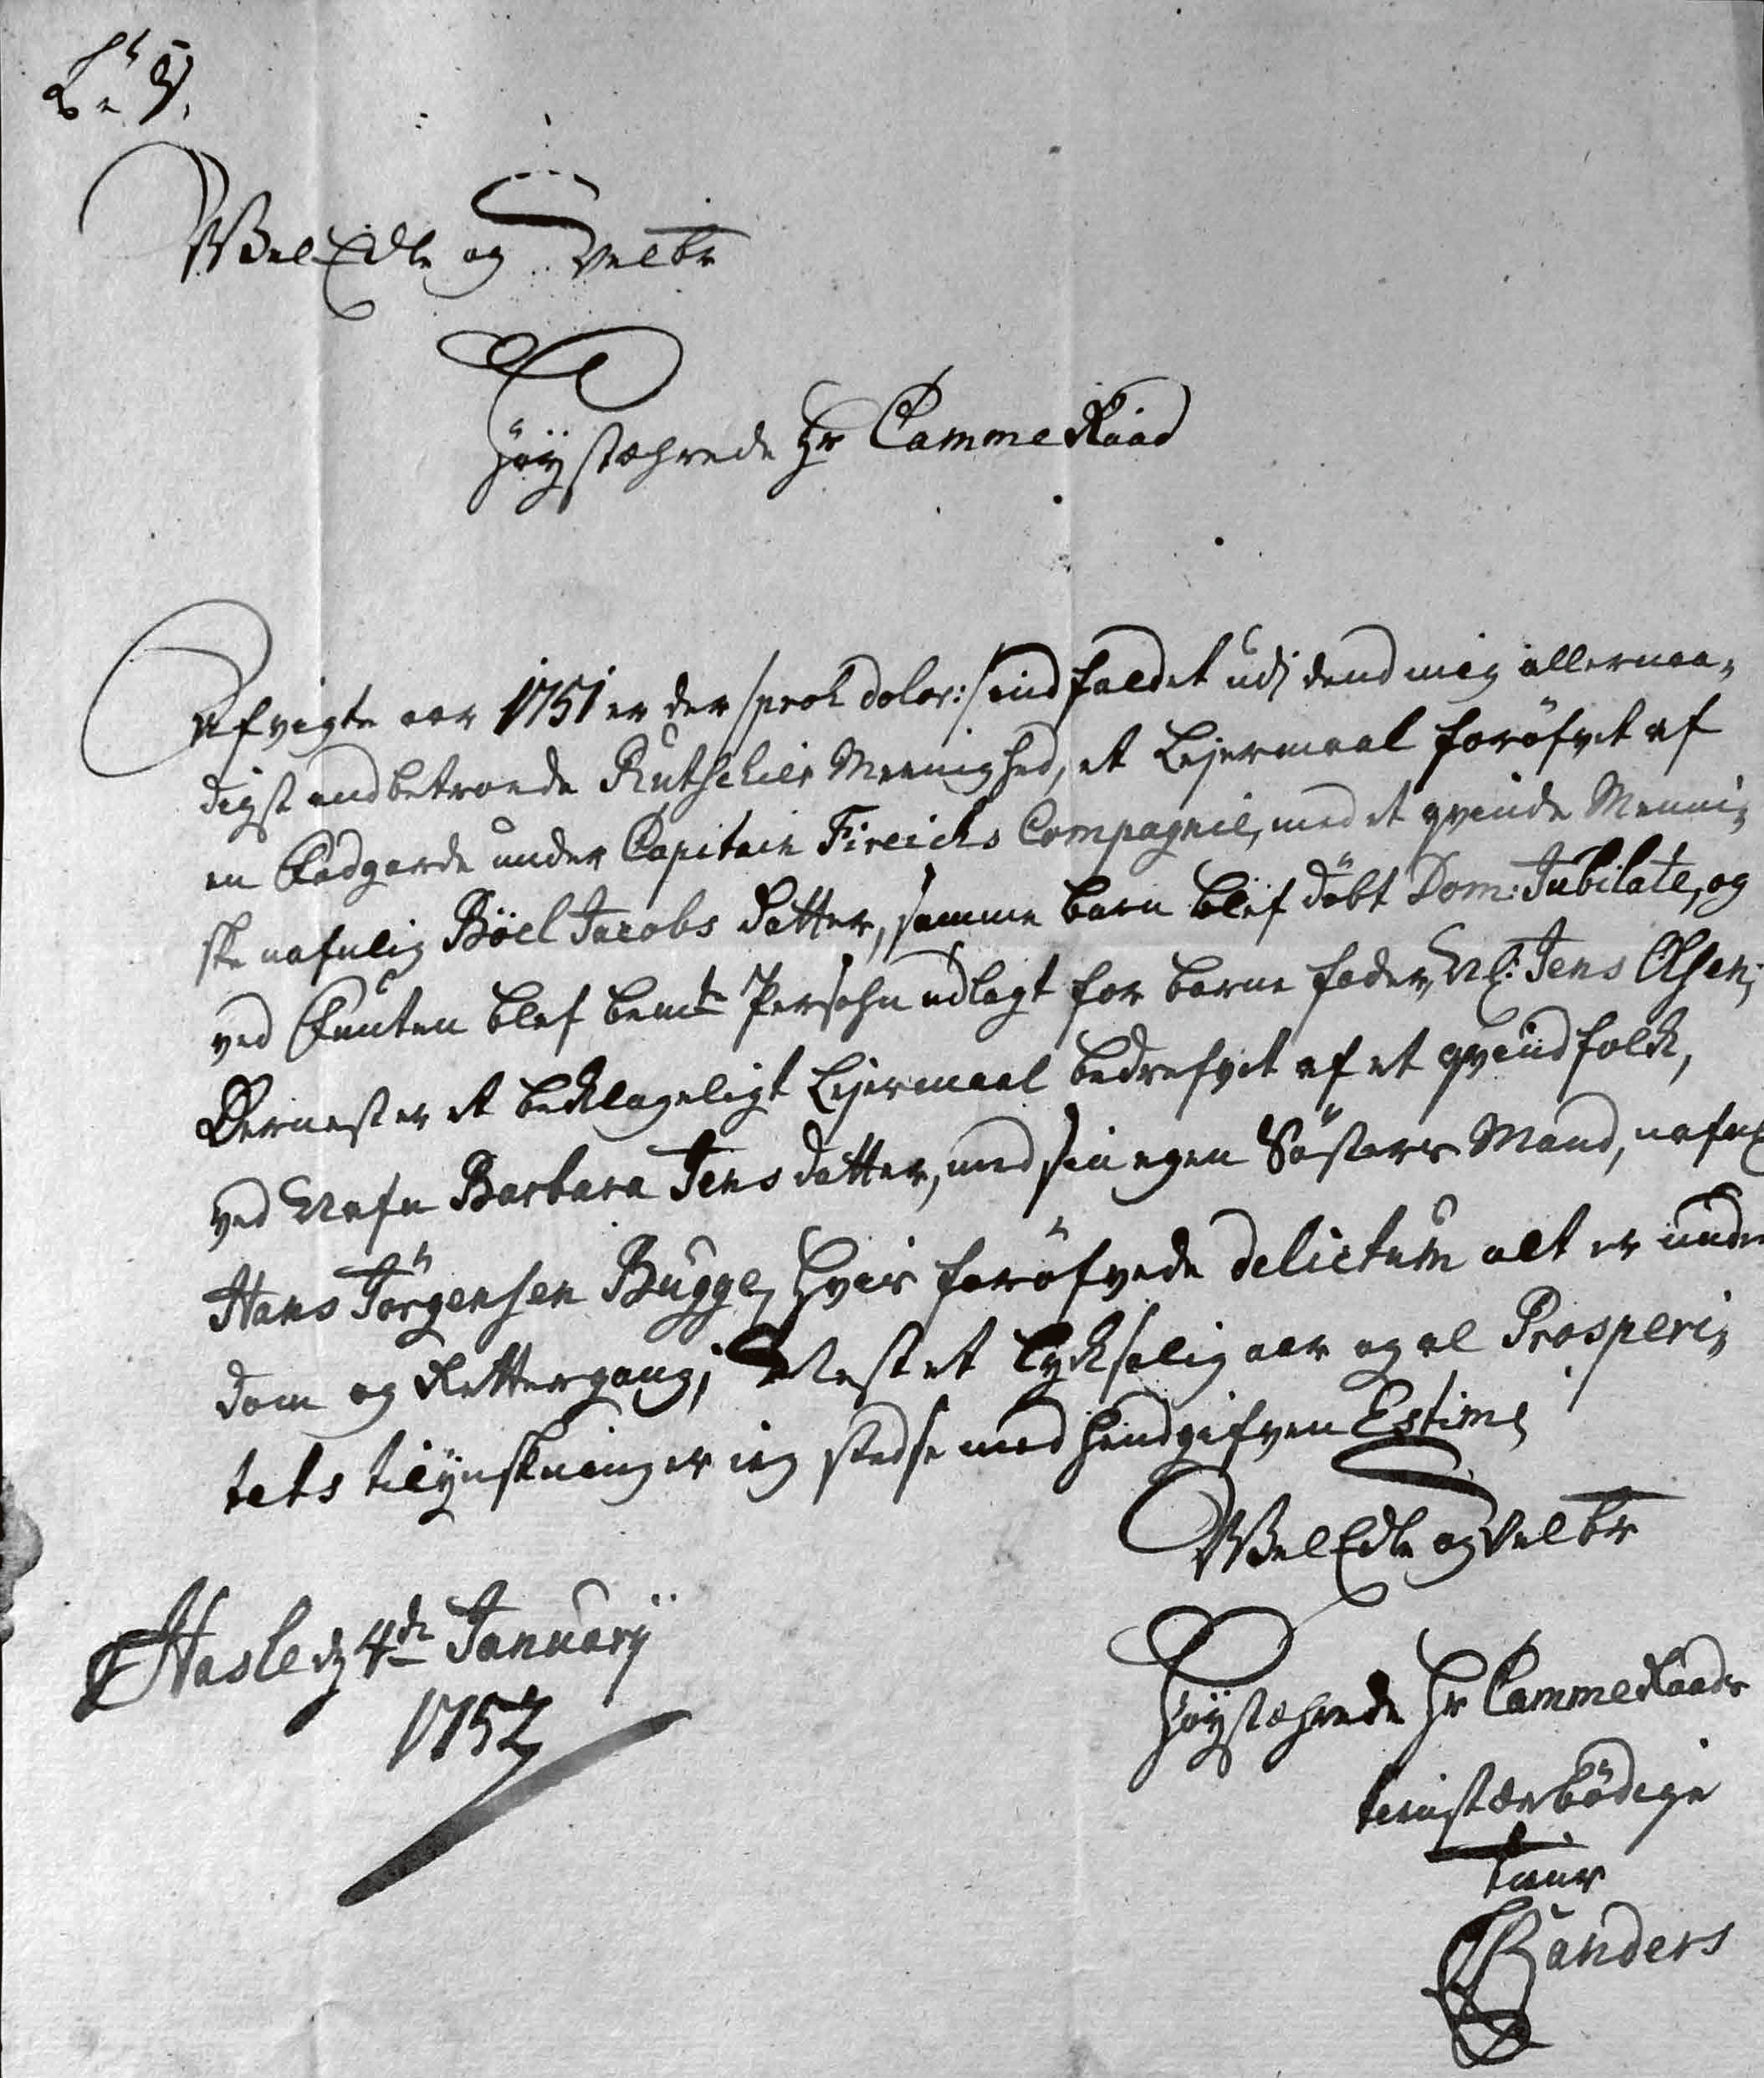 Wel Edle og Velbr
Höystærede Hr Camme Raad
Afvigte aar 1751 er der /proh dolor:/ indfaldet udj dend mig allernaa-
digst andbetroede Rutschier Meenighed, et Lejermaal foröfvet af
en Rødgarde under Capitain Fireichs Compagnie, med et qvinde Menni-
ske nafnlig Böel Jacobs Datter, samme barn blef döbt Dom: Jubilate, og
ved Funten blef bemte Persohn udlagt for barne fader, Nl: Jens Olsen;
Dernest er et beklageligt Lejermaal bedrefvet af et qvindfolk,
ved Nafn Barbara Jens datter, med sin egen Sösters Mand, nafnl
Hans Jörgensen Bugge, hvis foröfvede delictum alt er under
dom og Rettergang; Nest et lycksalig aar og al Prosperi-
tets tilynskning er ieg stedse med hendgifven Estime
Wel Edle og Velbr
Hasle d 4de Januarij
1752
Höystærede Hr Camme Raads
tienstærbödige
tiener
Randers